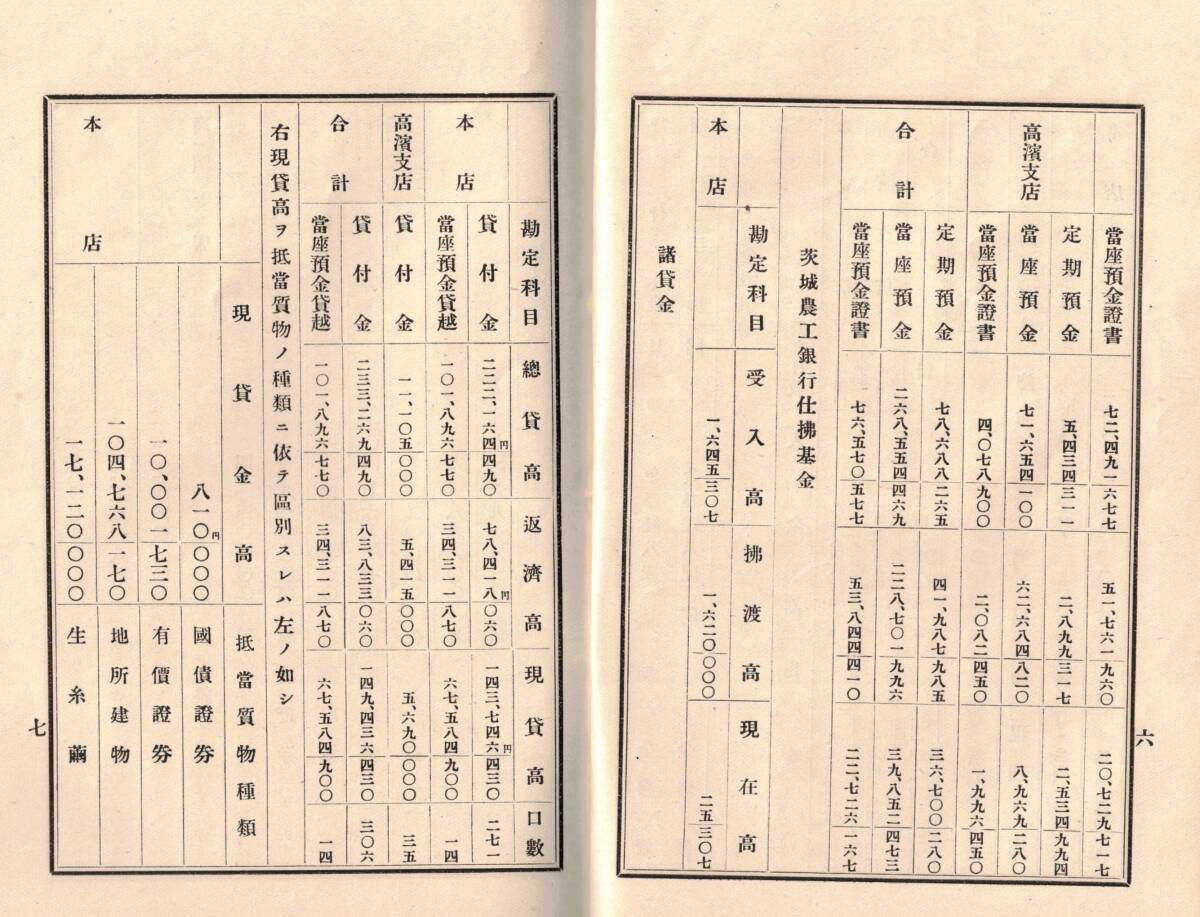 當座預金證書 七二、四九一 六七七 五一、七六一 九六〇 二〇、七二九 七一七
高濱支店
定期預金 五、四三四 三一一 二、八九九 三一七 二、五三四 九九四
當座預金 七一、六五四 一〇〇 六二、六八四 八二〇 八、九六九 二八〇
當座預金證書 四、〇七八 九〇〇 二、〇八二 四五〇 一、九九六 四五〇
合計
定期預金 七八、六八八 二六五 四一、九八七 九八五 三六、七〇〇 二八〇
當座預金 二六八、五五四 四六九 二二八、七〇一 九九六 三九、八五二 四七三
當座預金證書 七六、五七〇 五七七 五三、八四四 四一〇 二二、七二六 一六七
茨城農工銀行仕拂基金
勘定科目 受入高 拂渡高 現在高
本店 一、六四五 三〇七 一、六二〇 〇〇〇 二五 三〇七
諸貸金
六
勘定科目 總貸高 返濟高 現貸高 口數
本店
貸付金 二二二、一六四円 四九〇 七八、四一八円 〇六〇 一四三、七四六円 四三〇 二七一
當座預金貸越 一〇一、八九六 七七〇 三四、三一一 八七〇 六七、五八四 九〇〇 一四
高濱支店
貸付金 一一、一〇五 〇〇〇 五、四一五 〇〇〇 五、六九〇 〇〇〇 三五
合計
貸付金 二三三、二六九 四九〇 八三、八三三 〇六〇 一四九、四三六 四三〇 三〇六
當座預金貸越 一〇一、八九六 七七〇 三四、三一一 八七〇 六七、五八四 九〇〇 一四
右現貸高ヲ抵當質物ノ種類ニ依テ區別スレハ左ノ如シ
現貸金高 抵當質物種類
本店
八一〇円 〇〇〇 國債證券
一〇、〇〇一 七三〇 有價證券
一〇四、七六八 一七〇 地所建物
一七、一二〇 〇〇〇 生糸繭
七